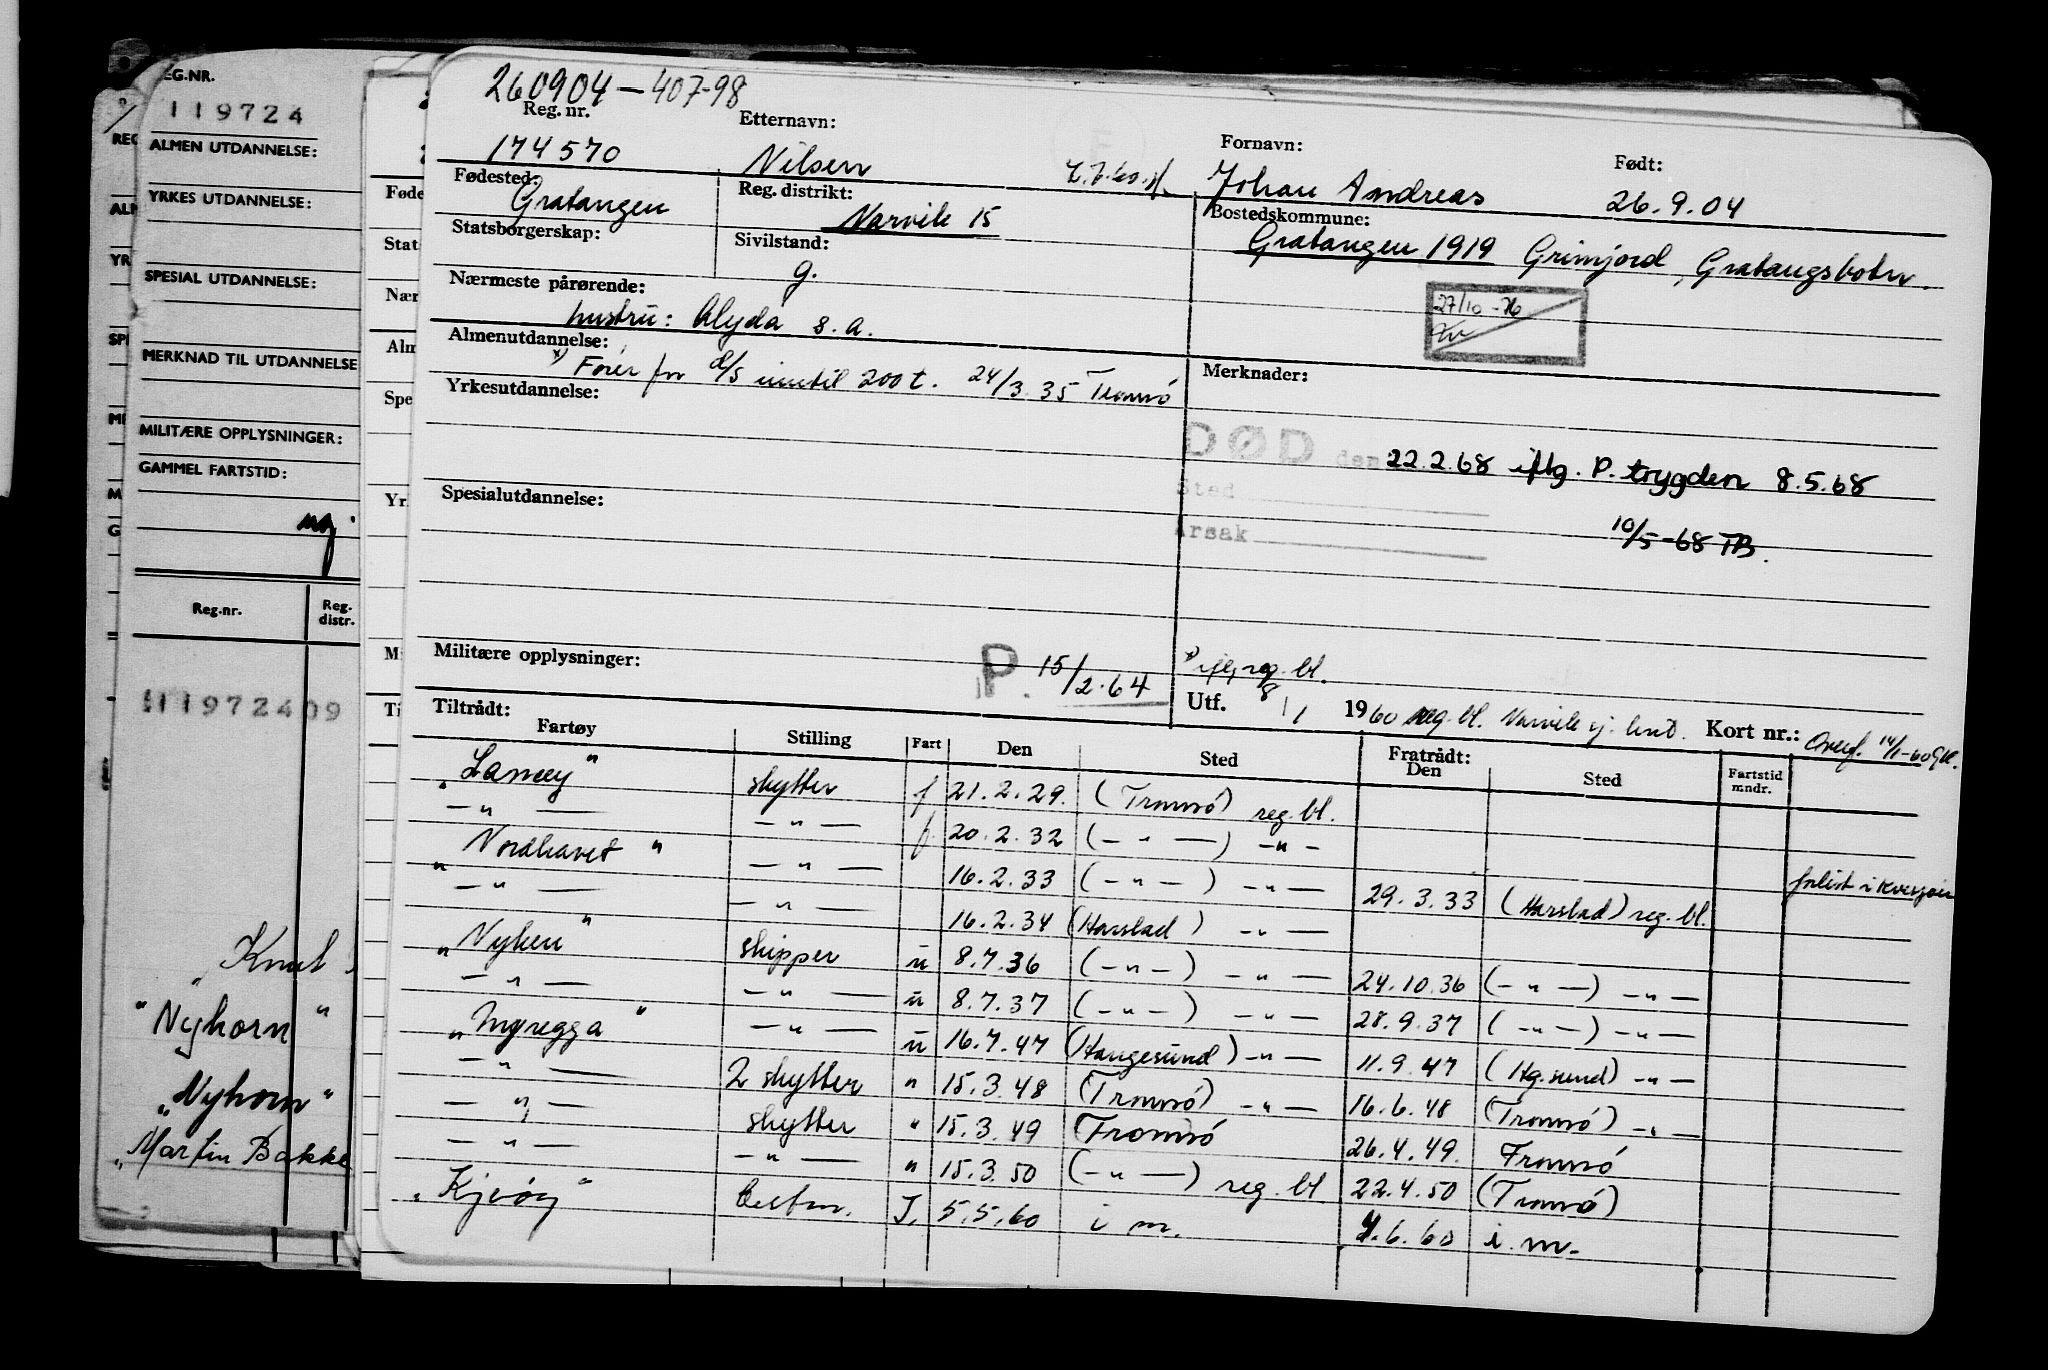 260904-407-98
Reg. nr. Etternavn: Fornavn: Født:
174570 Nilsen Johan Andreas 26.9.04
Fødested: Reg. distrikt: Bostedskommune:
Gratangen Narvik 15 Gratangen 1919 Grimjord, Gratangsbotn.
Statsborgerskap: Sivilstand:
g.
Nærmeste pårørende:
hustru: Alyda s.a.
27/10-76
Almenutdannelse: Merknader:
x) Fører for d/s inntil 200 t. 24/3.35 Tromsø
Yrkesutdannelse:
DØD den 22.2.68 iflg. P. trygden 8.5.68
Sted
Årsak 10/5-68 TB.
Spesialutdannelse:
Militære opplysninger: P. 15/2.64
x) iflg. reg. bl.
Utf. 8/1 1960 reg. bl. Narvik sj. Kort nr.: 14/1-60
Tiltrådt: Fratrådt:
Fartøy Stilling Fart Den Sted Den Sted Fartstid mndr.
"Lancey" skytter f 21.2.29. (Tromsø) reg. bl.
— " — — " — f. 20.2.32 (— " —) — " —
"Nordhavet" — " — 16.2.33 (— " —) — " — 29.3.33 (Harstad) reg. bl. forlist i
— " — — " — 16.2.34 (Harstad) — " —
"Nyken" skipper u 8.7.36 (— " —) — " — 24.10.36 (— " —) — " —
— " — — " — u 8.7.37 (— " —) — " — 28.9.37 (— " —) — " —
"Myregga" — " — u 16.7.47 (Haugesund) — " — 11.9.47 (Hg.sund) — " —
— " — 2 skytter " 15.3.48 (Tromsø) — " — 16.6.48 (Tromsø) — " —
— " — skytter " 15.3.49 (Tromsø 26.4.49. Tromsø
— " — — " — " 15.3.50 (— " —) reg. bl 22.4.50 (Tromsø)
"Kjeøy" bestm. I. 5.5.60 i m. 4.6.60 i. m.
EG.NR.
119724
ALMEN UTDANNELSE:
YRKES UTDANNELSE:
SPESIAL UTDANNELSE:
MERKNAD TIL UTDANNELSE
MILITÆRE OPPLYSNINGER:
GAMMEL FARTSTID:
Reg.nr. Reg. distr.
11972409
"Knut
"Nyhorn"
"Nyhorn"
"Martin Bakke
REG
ALM
YR
SPE
MI
G
Føde
Stat
Nær
Alm
Spe
Yr
M
Ti